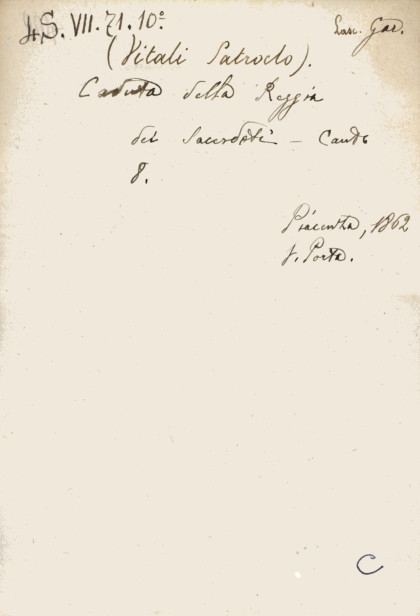 4S. VII. 71. 10º.
Lasc. Gar.
(Vitali Patroclo).
Caduta della Reggia
dei Sacerdoti - Canto
8.
Piacenza, 1862
f. Porta.
C